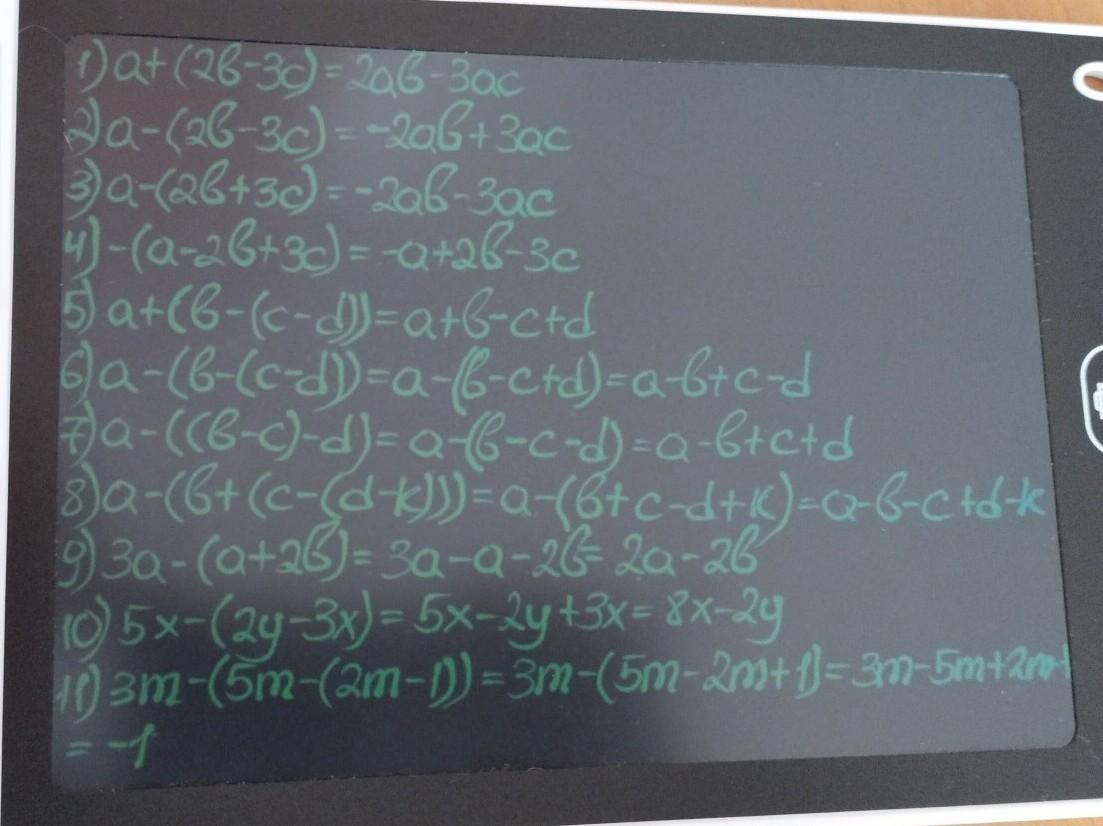 1) a+(2в-3c)=2aв-3ac
2) a-(2в-3c)=-2aв+3ac
3) a-(2в+3c)=-2aв-3ac
4) -(a-2в+3c)=-a+2в-3c
5) a+(в-(c-d))=a+в-c+d
6) a-(в-(c-d))=a-(в-c+d)=a-в+c-d
7) a-((в-c)-d)=a-(в-c-d)=a-в+c+d
8) a-(в+(c-(d-k)))=a-(в+c-d+k)=a-в-c+d-k
9) 3a-(a+2в)=3a-a-2в=2a-2в
10) 5x-(2y-3x)=5x-2y+3x=8x-2y
11) 3m-(5m-(2m-1))=3m-(5m-2m+1)=3m-5m+2m-
=-1